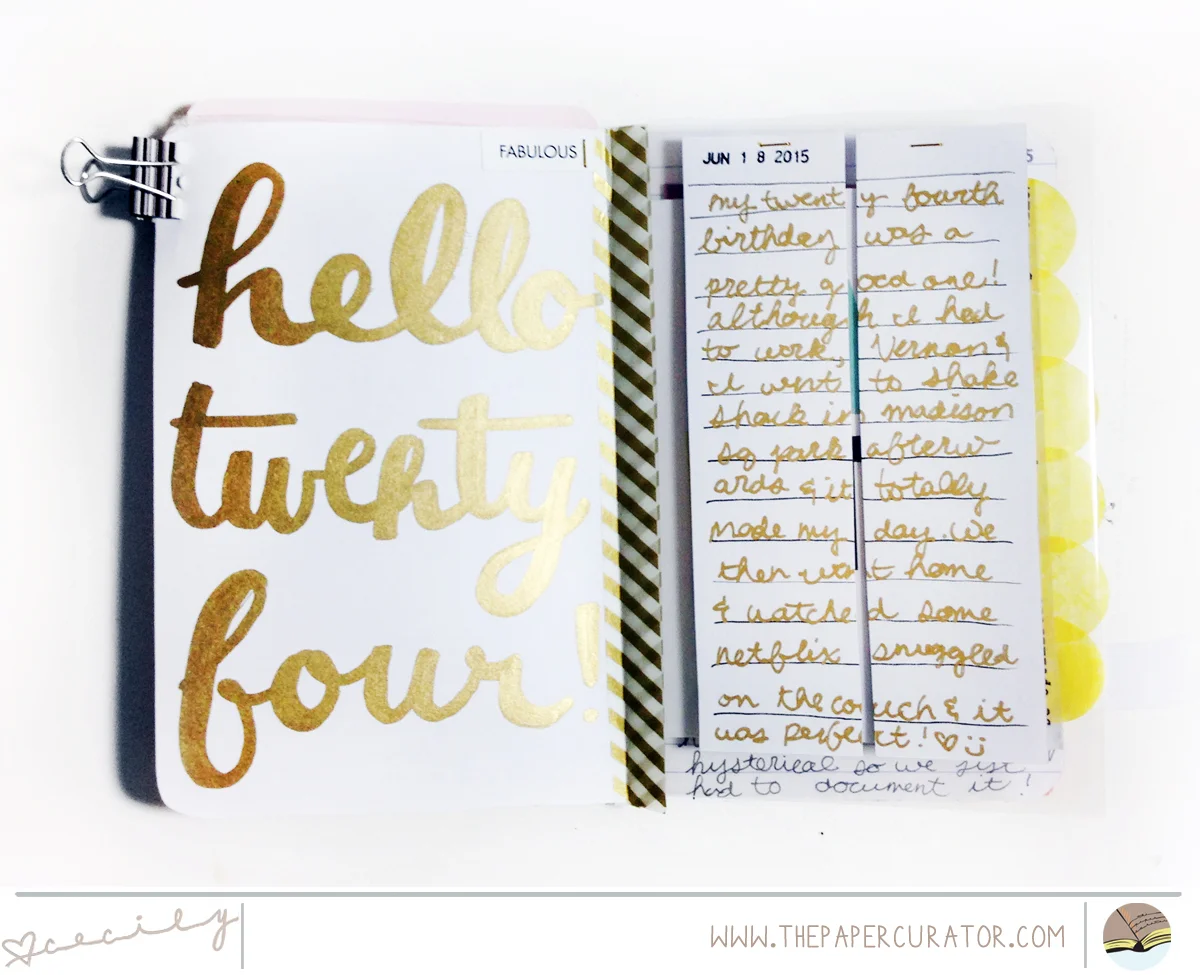 FABULOUS
hello
twenty
four!
JUN 18 2015
5
my twenty fourth
birthday was a
pretty good one!
although I had
to work, Vernon &
I went to shake
shack in madison
sq park afterw
ards & it totally
made my day. We
then went home
& watched some
netflix snuggled
on the couch & it
was perfect! ♡ :)
hysterical so we just
had to document it!
cecily
WWW.THEPAPERCURATOR.COM